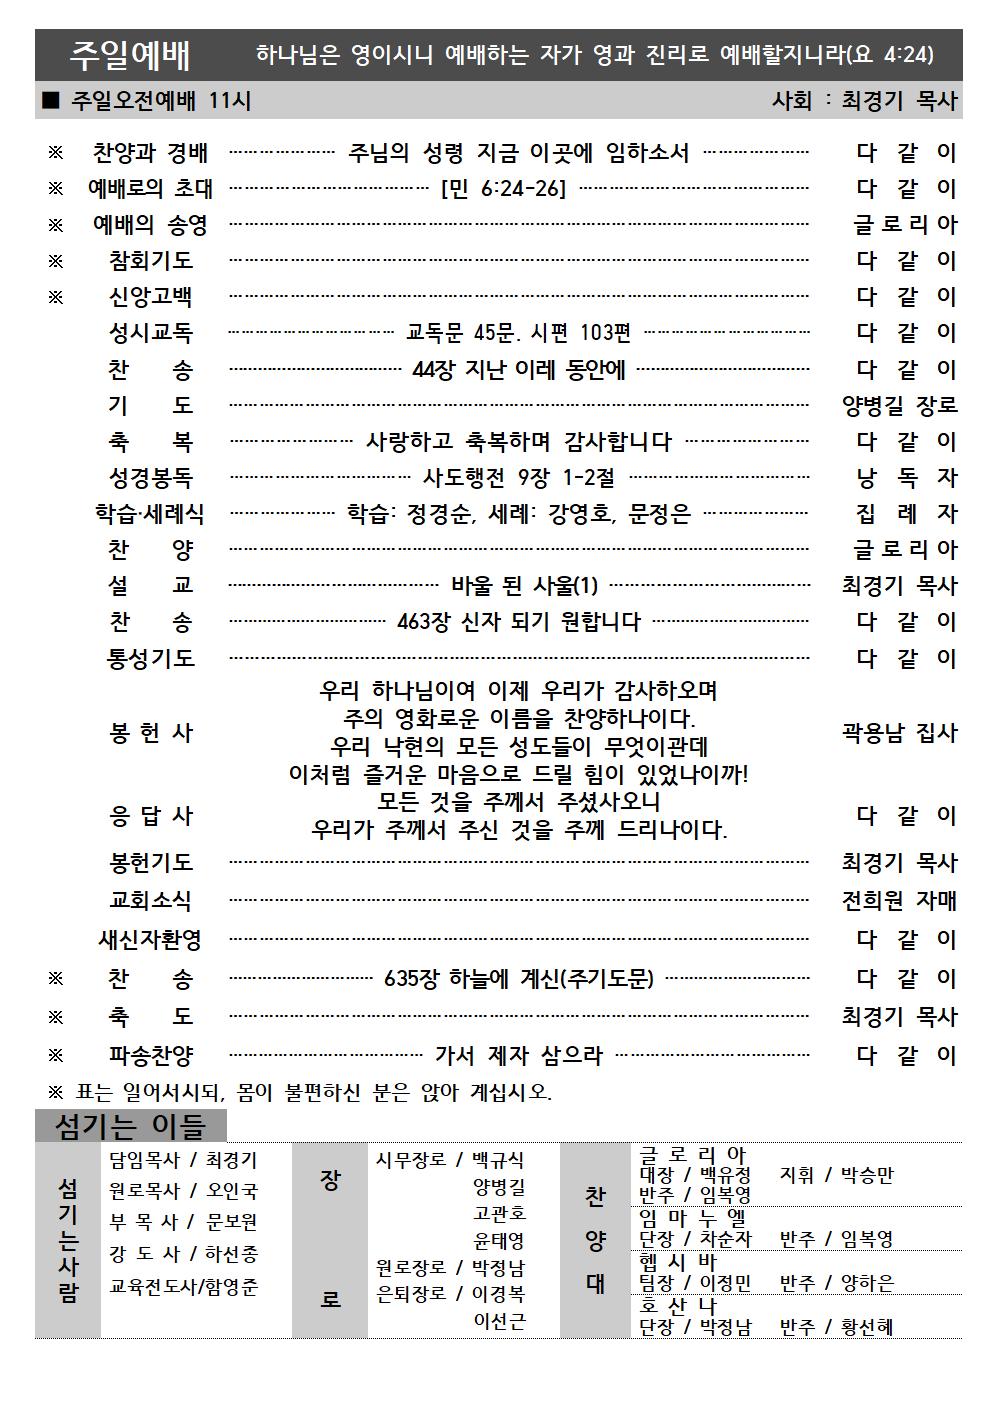 주일예배 하나님은 영이시니 예배하는 자가 영과 진리로 예배할지니라(요 4:24)
■ 주일오전예배 11시 사회 : 최경기 목사
※ 찬양과 경배 ………………… 주님의 성령 지금 이곳에 임하소서 ………………… 다 같 이
※ 예배로의 초대 ………………………………… [민 6:24-26] ……………………………………… 다 같 이
※ 예배의 송영 …………………………………………………………………………………………………… 글 로 리 아
※ 참회기도 …………………………………………………………………………………………………… 다 같 이
※ 신앙고백 …………………………………………………………………………………………………… 다 같 이
성시교독 …………………………… 교독문 45문. 시편 103편 …………………………… 다 같 이
찬 송 …………………………… 44장 지난 이레 동안에 …………………………… 다 같 이
기 도 …………………………………………………………………………………………………… 양병길 장로
축 복 …………………… 사랑하고 축복하며 감사합니다 …………………… 다 같 이
성경봉독 ……………………………… 사도행전 9장 1-2절 ……………………………… 낭 독 자
학습·세례식 ………………… 학습: 정경순, 세례: 강영호, 문정은 ………………… 집 례 자
찬 양 …………………………………………………………………………………………………… 글 로 리 아
설 교 ………………………………… 바울 된 사울(1) ………………………………… 최경기 목사
찬 송 ………………………… 463장 신자 되기 원합니다 ………………………… 다 같 이
통성기도 …………………………………………………………………………………………………… 다 같 이
우리 하나님이여 이제 우리가 감사하오며
주의 영화로운 이름을 찬양하나이다.
봉 헌 사 우리 낙현의 모든 성도들이 무엇이관데 곽용남 집사
이처럼 즐거운 마음으로 드릴 힘이 있었나이까!
모든 것을 주께서 주셨사오니
응 답 사 우리가 주께서 주신 것을 주께 드리나이다. 다 같 이
봉헌기도 …………………………………………………………………………………………………… 최경기 목사
교회소식 …………………………………………………………………………………………………… 전희원 자매
새신자환영 …………………………………………………………………………………………………… 다 같 이
※ 찬 송 ……………………… 635장 하늘에 계신(주기도문) ……………………… 다 같 이
※ 축 도 …………………………………………………………………………………………………… 최경기 목사
※ 파송찬양 ………………………………… 가서 제자 삼으라 ………………………………… 다 같 이
※ 표는 일어서시되, 몸이 불편하신 분은 앉아 계십시오.
섬기는 이들
섬기는사람
담임목사 / 최경기
원로목사 / 오인국
부 목 사 / 문보원
강 도 사 / 하선종
교육전도사/함영준
장로
시무장로 / 백규식
양병길
고관호
윤태영
원로장로 / 박정남
은퇴장로 / 이경복
이선근
찬양대
글 로 리 아
대장 / 백유정 지휘 / 박승만
반주 / 임복영
임 마 누 엘
단장 / 차순자 반주 / 임복영
헵 시 바
팀장 / 이정민 반주 / 양하은
호 산 나
단장 / 박정남 반주 / 황선혜